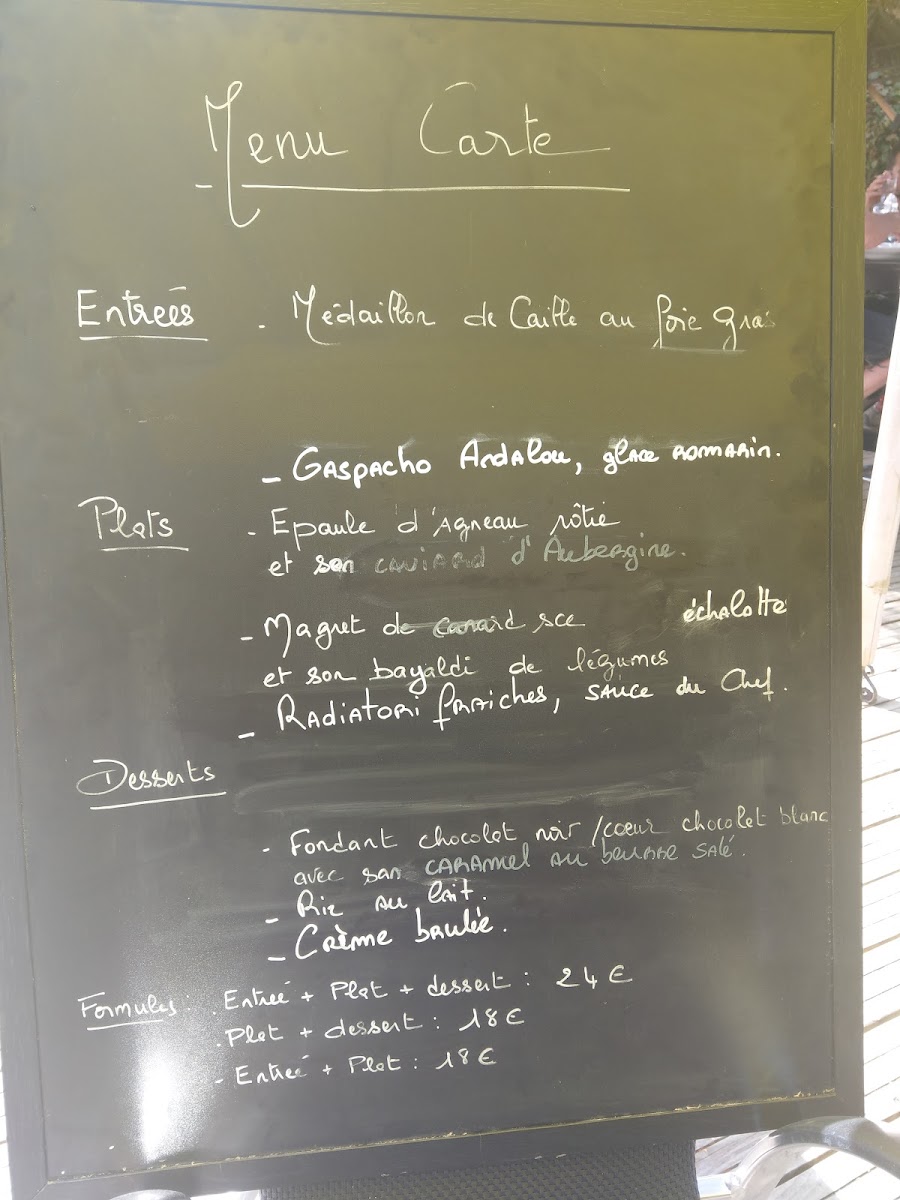 Menu Carte
Entrées - Médaillon de Caille au foie gras
- Gaspacho Andalou, glace romarin.
Plats - Epaule d'Agneau rôtie
et son caviard d'Aubergine.
- Magret de canard sce échalotte
et son bayaldi de légumes
- Radiatori fraiches, sauce du Chef.
Desserts
- Fondant chocolat noir / coeur chocolat blanc
avec son CARAMEL au beurre salé.
- Riz au lait.
- Crème brulée.
Formules : . Entrée + Plat + dessert : 24 €
. Plat + dessert : 18 €
- Entrée + Plat : 18 €